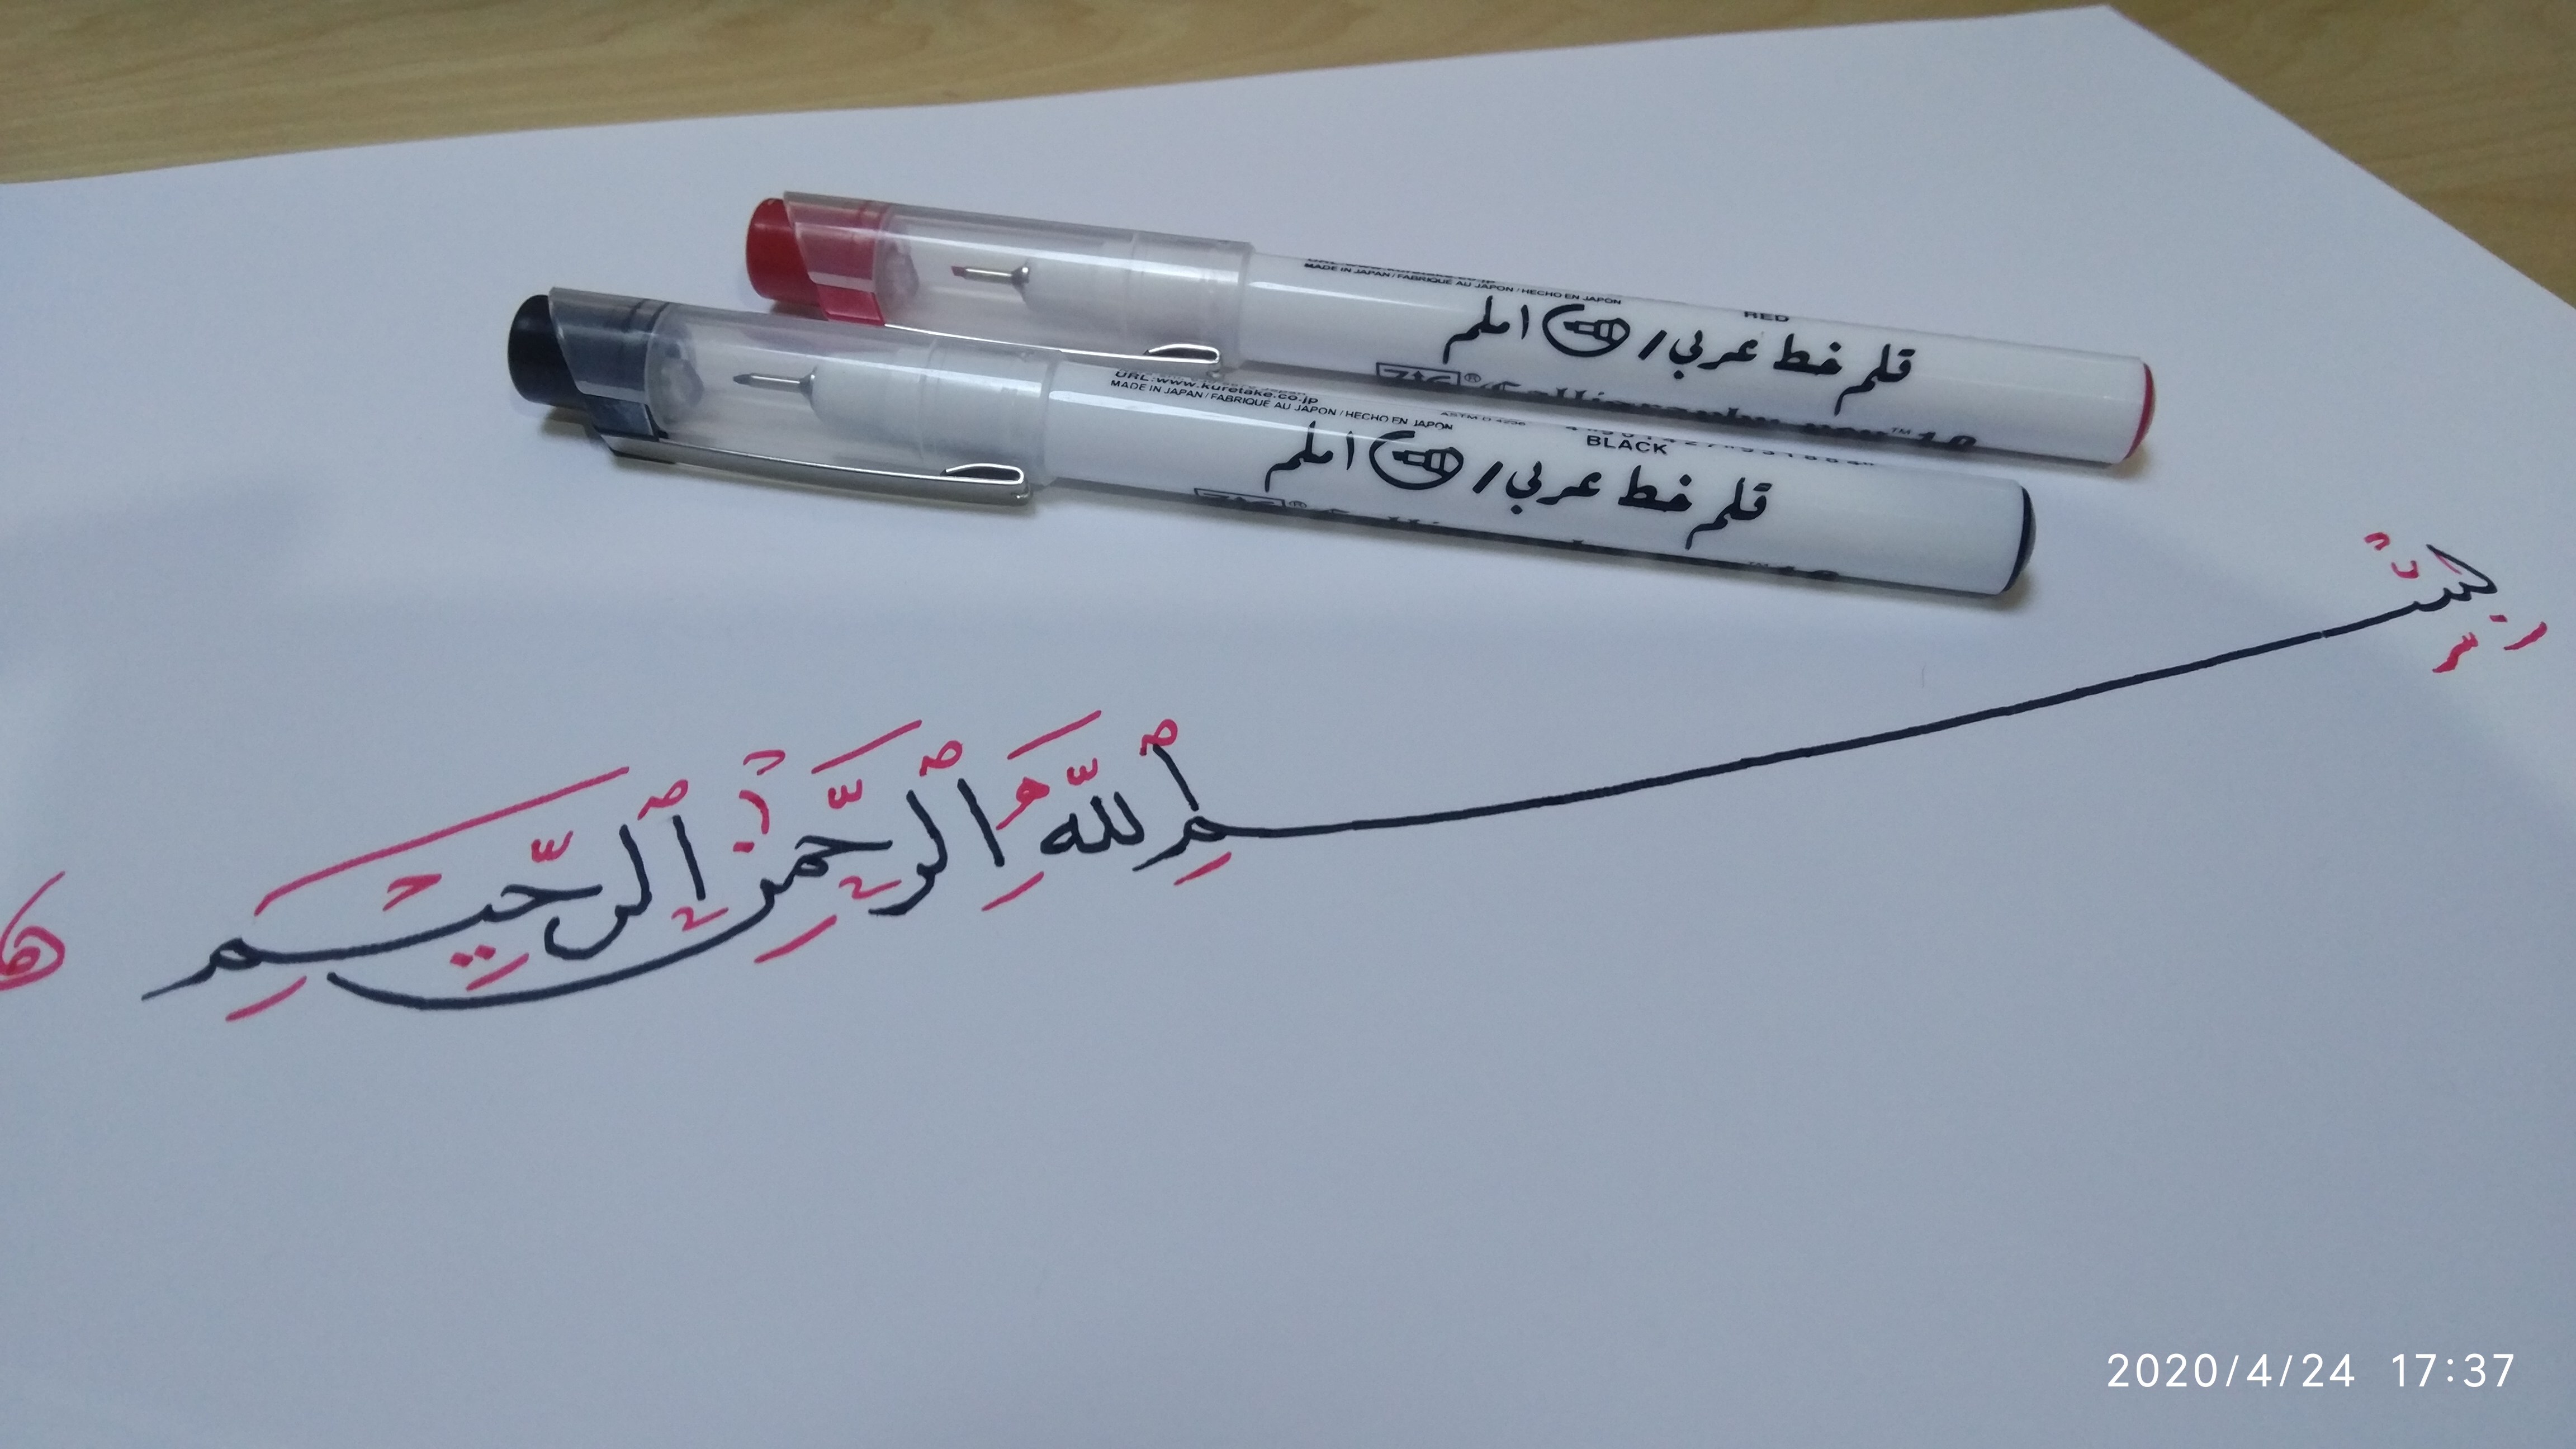 MADE IN JAPAN / FABRIQUÉ AU JAPON / HECHO EN JAPON
RED
قلم خط عربي / ١ملم
ZIG® Calligraphy pen™ 1.0
URL:www.kuretake.co.jp
MADE IN JAPAN / FABRIQUÉ AU JAPON / HECHO EN JAPON
ASTM D 4236
BLACK
قلم خط عربي / ١ملم
ZIG®
بِسْمِ ٱللَّهِ ٱلرَّحْمَٰنِ ٱلرَّحِيمِ
2020/4/24 17:37